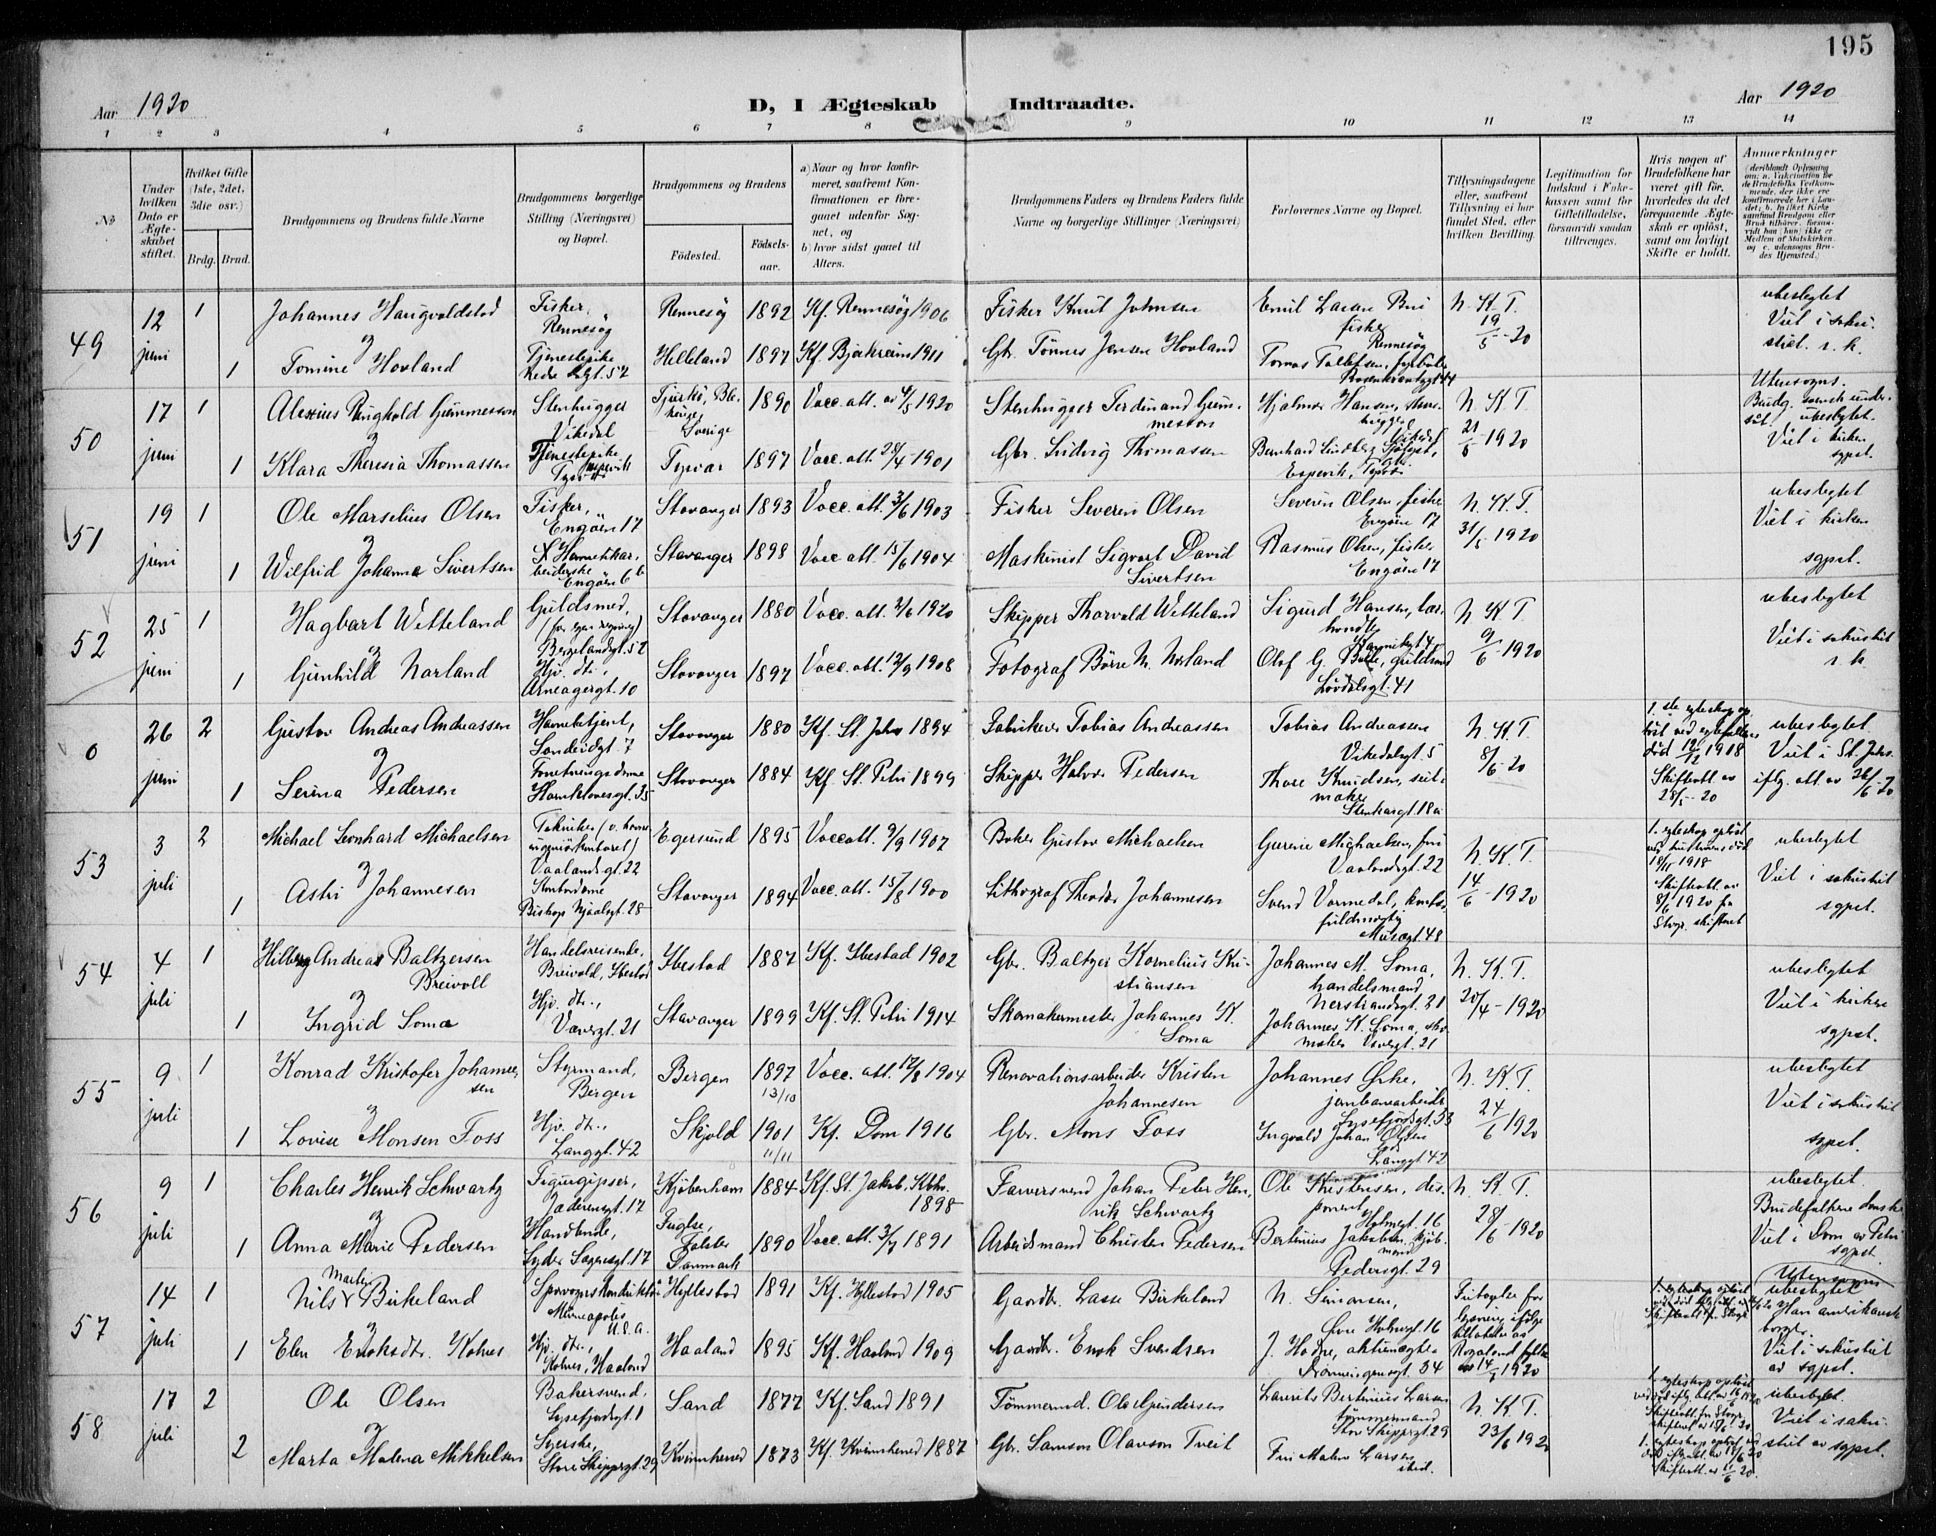 195
Aar 1920
D, I Ægteskab Indtraadte.
Aar 1920
1 2 3 4 5 6 7 8 9 10 11 12 13 14
№
Under hvilken Dato er Ægteskabet stiftet.
Hvilket Gifte (1ste, 2det, 3die osv.)
Brdg. Brud.
Brudgommens og Brudens fulde Navne
Brudgommens borgerlige Stilling (Næringsvei) og Bopæl.
Brudgommens og Brudens
Födested.
Födselsaar.
a) Naar og hvor konfirmeret, saafremt Konfirmationen er foregaaet udenfor Sognet, og
b) hvor sidst gaaet til Alters.
Brudgommens Faders og Brudens Faders fulde Navne og borgerlige Stillinger (Næringsvei)
Forlovernes Navne og Bopæl.
Tillysningsdagene eller, saafremt Tillysning ei har fundet Sted, efter hvilken Bevilling.
Legitimation for Indskud i Enkekassen samt for Giftetilladelse, forsaavidt saadan tiltrænges.
Hvis nogen af Brudefolkene har været gift för, hvorledes da det foregaaende Ægteskab er oplöst, samt om lovligt Skifte er holdt.
Anmærkninger
49 12 juni 1 Johannes Haugvaldstad Fisker, Rennesøy Rennesøy 1892 Kf. Rennesøy 1906 Fisker Knut Johnsen Emil Lasse Bru fisker Rennesøy N. K. T. 19/5-20 ubeslegtet Viet i sakristiet. r. k.
og
1 Tomine Hovland Tjenestepike Helleland 1897 Kf. Bjerkreim 1911 Gbr. Tönnes Jensen Hovland Tomas Tollefsen,
50 17 juni 1 Alexius Ringhold Gummesson Stenhugger Vikedal Tjurkö, Blekinge Sverige 1890 Vacc. att. av 4/5 1920 Stenhugger Ferdinand Gummesson Hjalmar Hansen, stenhugger Vikedal N. K. T. 21/5 1920 Utensogns. Brudg. svensk undersåt, ubeslegtet. Viet i kirken sgpst.
og
1 Klara Theresia Thomassen Tjenestepike Tysvær 1897 Vacc. att. 28/4 1901 Gbr. Ludvig Thomassen Bernhard Lindberg Espevik, Tysvær
51 19 juni 1 Ole Marselius Olsen Fisker, Engöen 17 Stavanger 1893 Vacc. att. 3/6 1903 Fisker Severin Olsen Severin Olsen, fisker Engöen 17 N. K. T. 31/5 1920 ubeslegtet Viet i kirken sgpst.
og
1 Wilfrid Johanna Sivertsen Hermetikarbeiderske Engöen 6 b Stavanger 1898 Vacc. att. 15/6 1904 Maskinist Sigvart David Sivertsen Rasmus Olsen, fisker Engöen 17
52 25 juni 1 Hagbart Wetteland Guldsmed, (for egen regning) Bergelandsgt. 52 Stavanger 1880 Vacc. att. 2/6 1920 Skipper Thorvald Wetteland Sigurd Hansen, lærhandler N. K. T. 9/6 1920 ubeslegtet Viet i sakristiet r. k.
og
1 Gunhild Norland Hjv. dtr., Arneagergt. 10 Stavanger 1897 Vacc. att. 12/9 1908 Fotograf Börre N. Norland Olaf G. Bøe, guldsmed Lövdalsgt. 41
0 26 juni 2 Gustav Andreas Andreassen Havnebetjent, Sandvigt. 7 Stavanger 1880 Kf. St. Joh. 1894 Fabrikeier Tobias Andreassen Tobias Andreassen Vikedalsgt 5 N. K. T. 8/6-20 1ste egteskap oplöst ved egtefellens död 12/12 1918 Skifteatt. av 28/5-20 ubeslegtet Viet i St. Johs. iflg. att. av 26/6-20
og
1 Serina Pedersen Forretningsdame Haraklövesgt. 35 Stavanger 1884 Kf. St. Petri 1899 Skipper Halvor Pedersen Thore Knudsen, seilmaker Stenkargt. 18a
53 3 juli 2 Michael Leonhard Michaelsen Tekniker Vaalandsgt. 22 Egersund 1895 Vacc att. 9/9 1907 Baker Gustav Michaelsen Gurine Michaelsen, fru Vaalandsgt 22 N. K. T. 14/6 1920 1. egteskap oplöst ved hustruens död 18/11 1918 Skifteatt. av 8/6 1920 fra Stvgr. skifteret ubeslegtet Viet i sakristiet sgpst.
og
1 Astri Johannesen Kontordame Bishop Njaalsgt. 28 Stavanger 1894 Vacc. att. 15/8 1900 Lithograf Theodor Johannesen Svend Vormedal, kontorfuldmegtig Murægt. 48
54 4 juli 1 Hilberg Andreas Baltzersen Breivoll Handelsreisende, Breivold, Ibestad Ibestad 1887 Kf. Ibestad 1902 Gbr. Baltzer Kornelius Kristiansen Johannes M. Soma, handelsmand Nerstrandsgt 21 N. K. T. 20/4-1920 ubeslegtet Viet i kirken sgpst.
og
1 Ingrid Soma Hjv. dtr., Vævergt. 21 Stavanger 1899 Kf. St. Petri 1914 Skomakermester Johannes K. Soma Johannes K. Soma, skomaker Vævergt. 21
55 9 juli 1 Konrad Kristofer Johannessen Styrmand, Bergen Bergen 1897 13/10 Vacc. att. 12/8 1904 Renovationsarbeider Kristen Johannesen Johannes Örke, jernbanearbeider Lysefjordsgt. 53 N. K. T. 24/6 1920 ubeslegtet Viet i sakristiet sgpst.
og
1 Lovise Monsen Foss Hjv. dtr., Langgt. 42 Skjold 1901 11/11 Kf. Dom 1916 Gbr. Mons Foss Ingvald Johan Olsen Langgt 42
56 9 juli 1 Charles Henrik Schwartz Figurgipser, Jaderensgt. 17 Kjöbenhavn 1884 Kf. St. Jakob, Kbhv. 1898 Farversvend Johan Peter Henrik Schwartz Ole Kristensen, disponent Holmegt. 16 N. K. T. 28/6 1920 ubeslegtet. Brudefolkene danske Viet i Dom av Petri sgpst.
og
1 Anna Marie Pedersen Handlende, Lyder Sagensgt. 17 Fuglse, Falster Danmark 1890 Vacc. att. 3/7 1891 Arbeidsmand Christen Pedersen Bertinius Jakobsen kjöbmand Pedersgt. 29
57 14 juli 1 Nils Martin Birkeland Sporvognskonduktör Minneapolis U.S.A. Hyllestad 1891 Kf. Hyllestad 1905 Gaardbr. Lasse Birkeland N. Simonsen, Övre Holmegt. 16 Fritagelse for lysning ifölge tilladelse av Rogaland fylke av 14/7 1920 Utensogns ubeslegtet Han amerikansk borger. Viet i sakristiet av sgpst.
og
1 Elen Enoksdtr. Kolnes Hjv. dtr., Kolnes, Haaland Haaland 1895 Kf. Haaland 1909 Gaardbr. Enok Svendsen J. Hodne, Dronningensgt. 34
58 17 juli 2 Ole Olsen Bakersvend, Lysefjordsgt. 1 Sand 1877 Kf. Sand 1891 Tömmermd. Ola Gundersen Laurits Bertinius Larsen tömmermand Store Skippergt. 29 N. K. T. 23/6 1920 ubeslegtet. Viet i sakristiet av sgpst.
og
2 Marta Malena Mikkelsen Syerske, Store Skippergt. 29 Kvinnherred 1873 Kf. Kvinnherred 1887 Gbr. Samson Olavson Tveit Fru Malene Larsen sted.